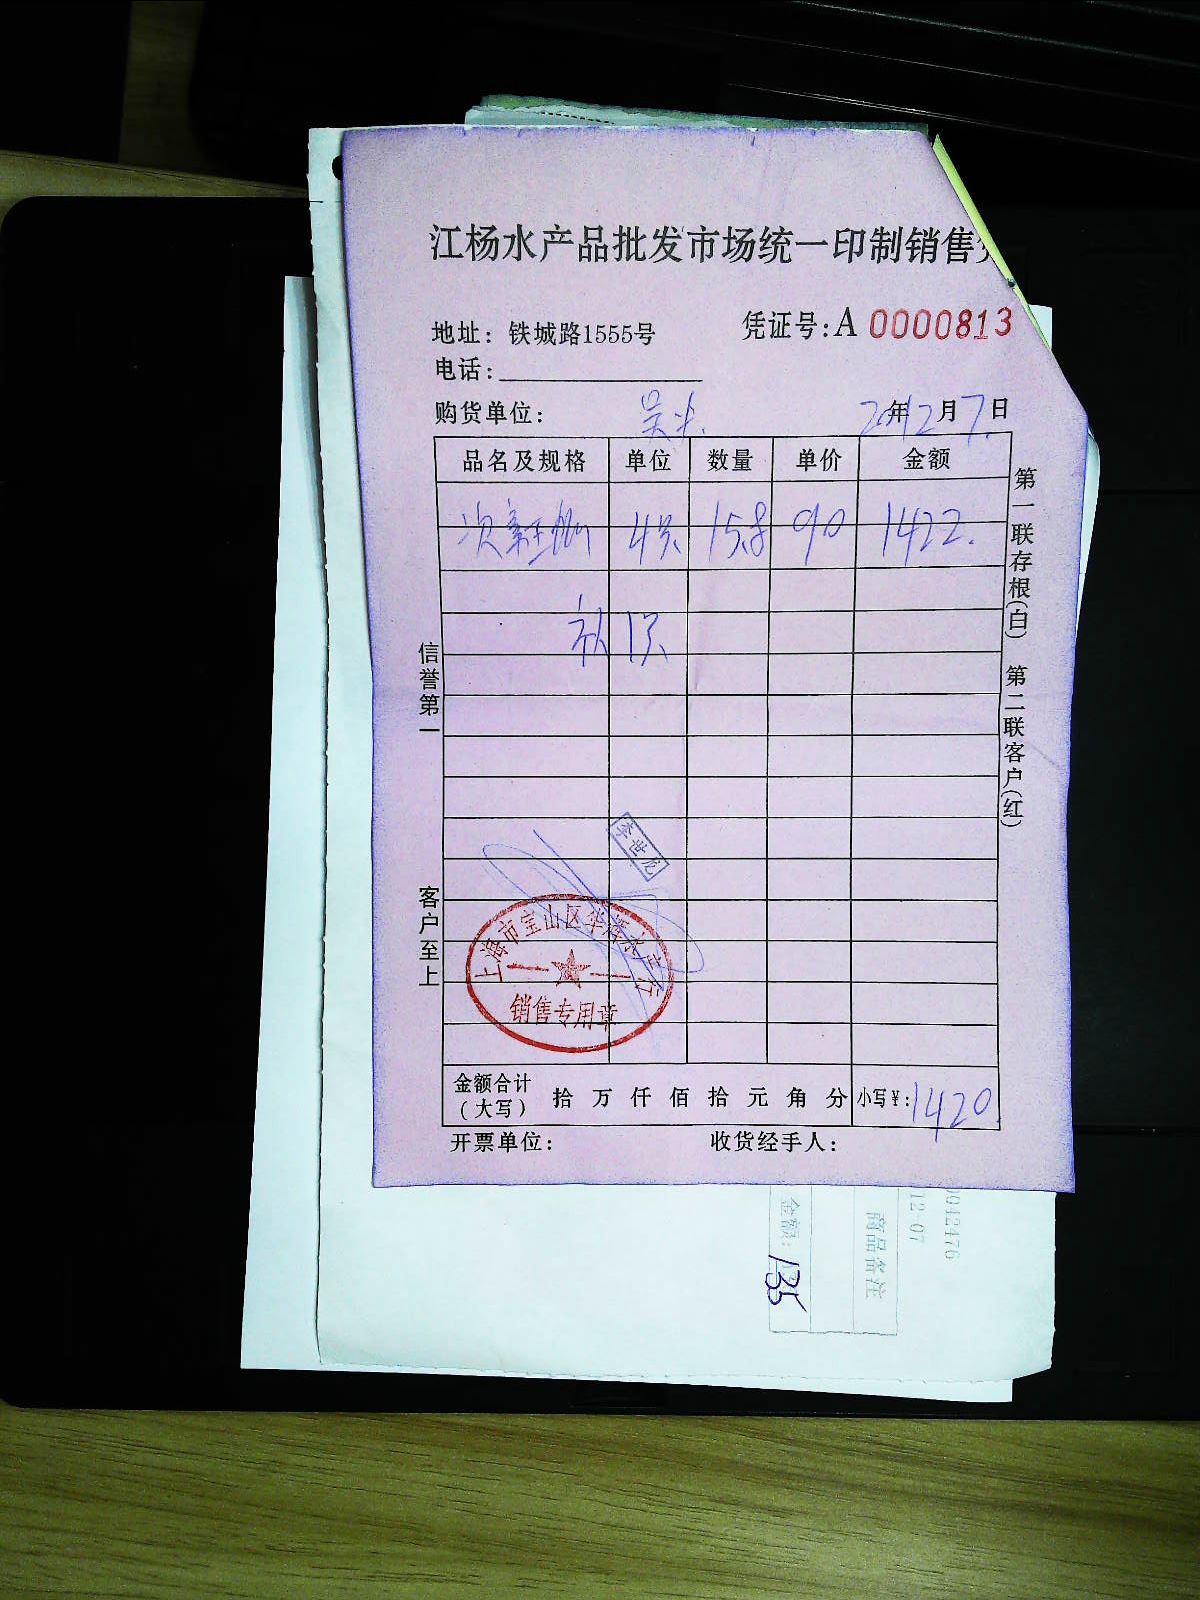 江杨水产品批发市场统一印制销售
地址：铁城路1555号
凭证号：A 0000813
电话：
购货单位：吴
20年12月7日
品名及规格 单位 数量 单价 金额
次 4只 15.8 90 1422.
补 1只
信誉第一
客户至上
第一联存根(白) 第二联客户(红)
李世龙
上海市宝山区华辉水产行
销售专用章
金额合计（大写） 拾 万 仟 佰 拾 元 角 分 小写￥：1420.
开票单位： 收货经手人：
0042476
12-07
商品备注
金额：135